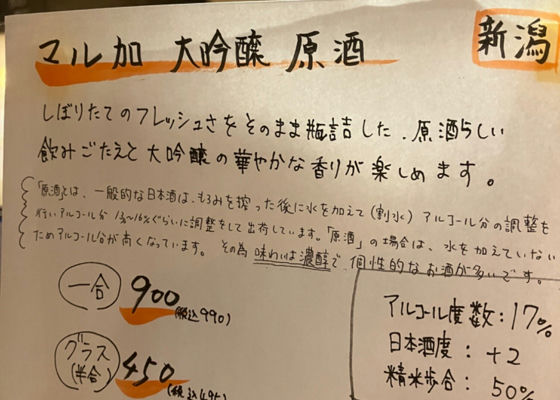 マル加 大吟醸 原酒
新潟
しぼりたてのフレッシュさをそのまま瓶詰した、原酒らしい
飲みごたえと大吟醸の華やかな香りが楽しめます。
「原酒」とは、一般的な日本酒は、もろみを搾った後に水を加えて(割水)アルコール分の調整を
行いアルコール分15~16%ぐらいに調整をして出荷しています。「原酒」の場合は、水を加えていない
ためアルコール分が高くなっています。その為味わいは濃醇で、個性的なお酒が多いです。
一合 900(税込990)
グラス(半合) 450(税込495)
アルコール度数:17%
日本酒度:+2
精米歩合:50%